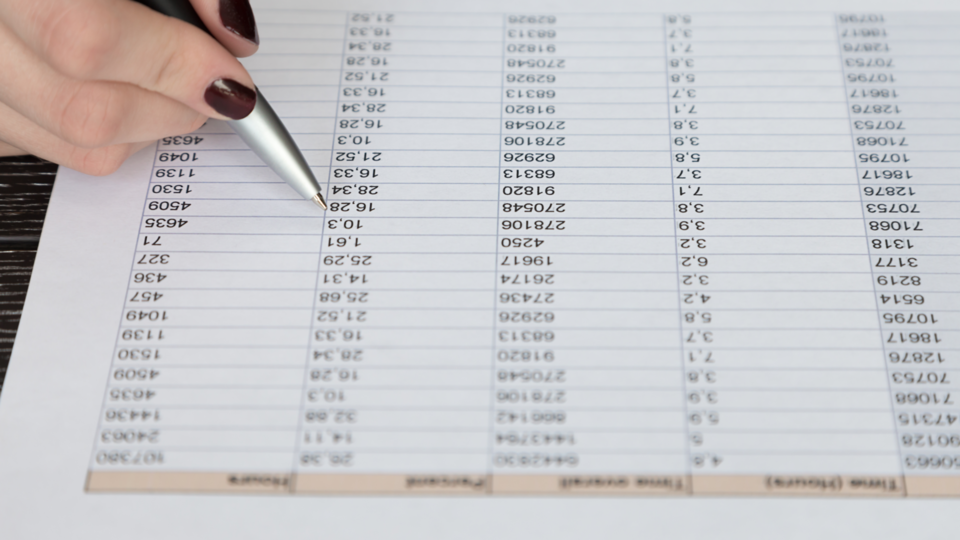 Time (Hours) Time overall Percent Hours
4,8 107380
5 14,11 24063
47315 5,9 866142 32,88 14436
71068 3,9 278106 10,3 4635
70753 3,8 270548 16,28 4509
12876 7,1 91820 28,34 1530
18617 3,7 68313 16,33 1139
10795 5,8 62926 21,52 1049
6514 4,2 27436 25,68 457
8219 3,2 26174 14,31 436
3177 6,2 19617 25,29 327
1318 3,2 4250 1,61 71
71068 3,9 278106 10,3 4635
70753 3,8 270548 16,28 4509
12876 7,1 91820 28,34 1530
18617 3,7 68313 16,33 1139
10795 5,8 62926 21,52 1049
71068 3,9 278106 10,3 4635
70753 3,8 270548 16,28
12876 7,1 91820 28,34
18617 3,7 68313 16,33
10795 5,8 62926 21,52
70753 3,8 270548 16,28
12876 7,1 91820 28,34
18617 3,7 68313 16,33
10795 5,8 62926 21,52